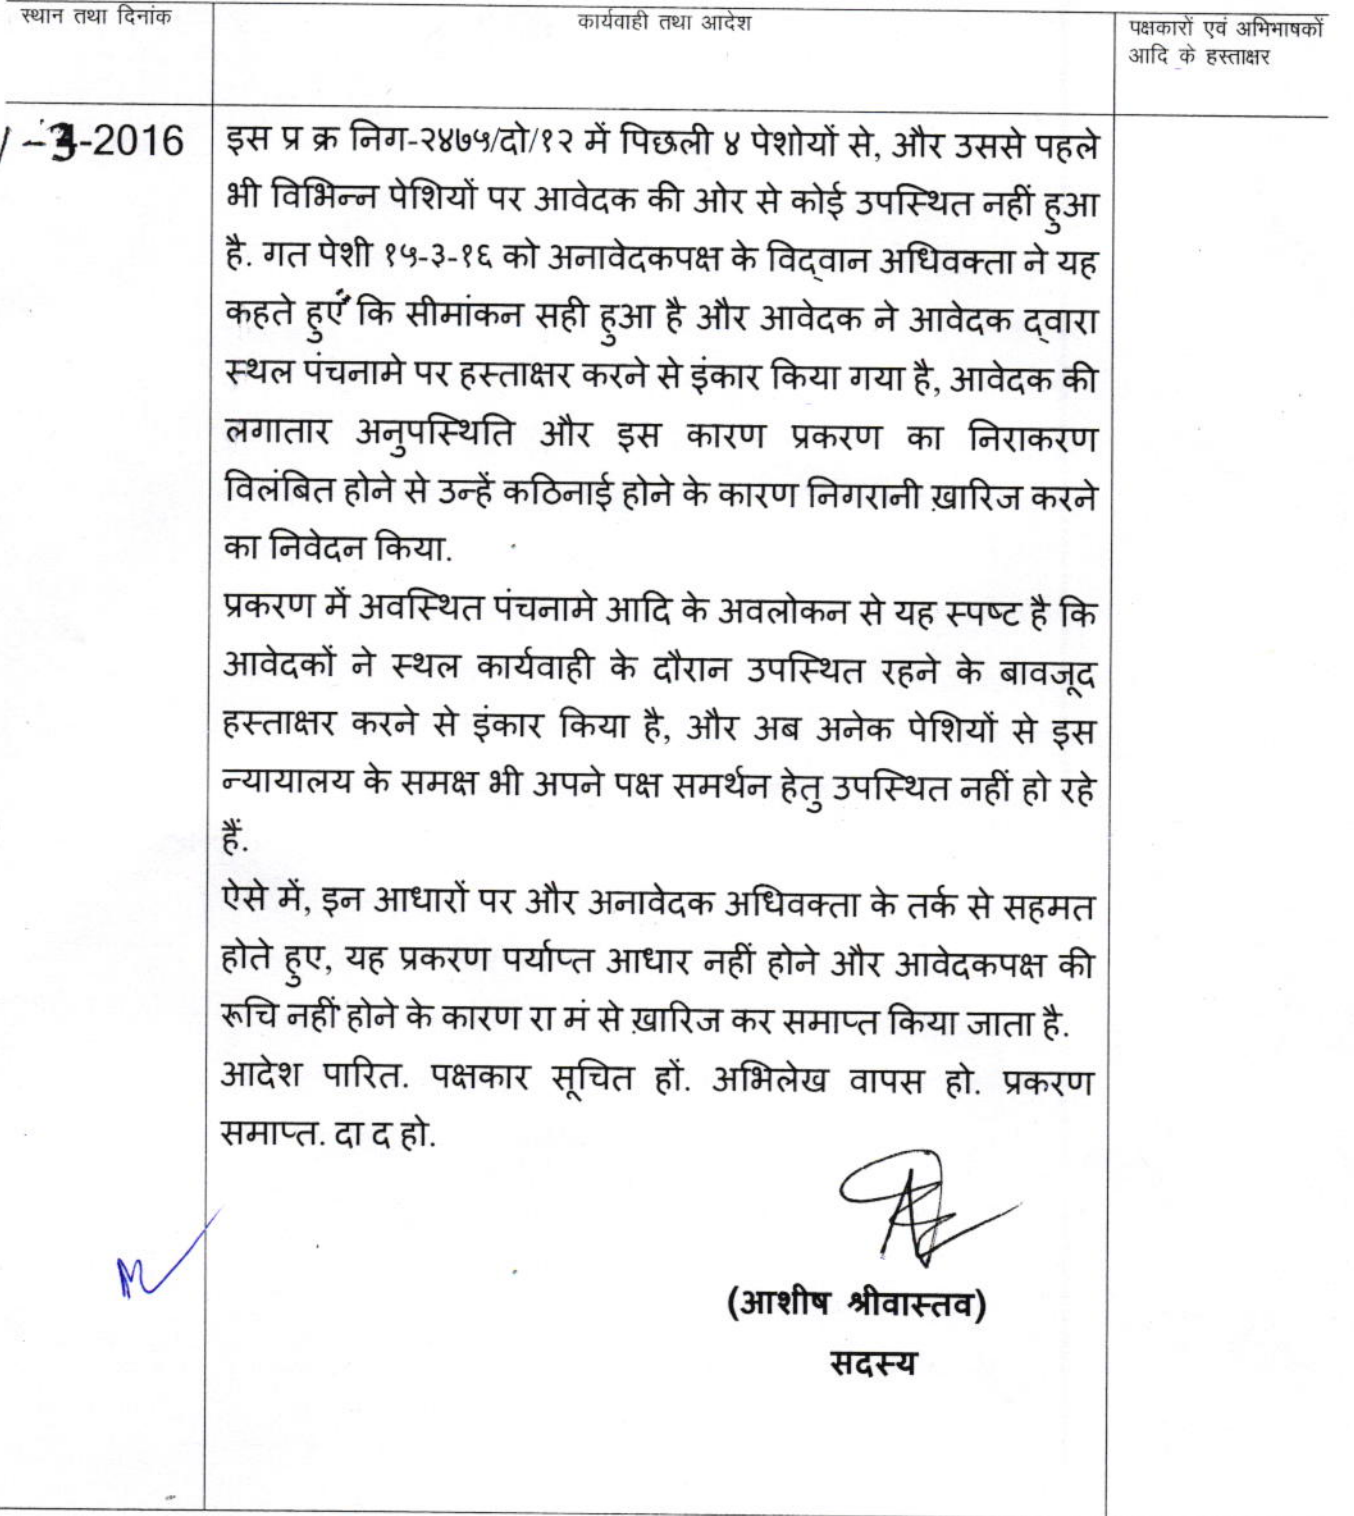 स्थान तथा दिनांक
कार्यवाही तथा आदेश
पक्षकारों एवं अभिभाषकों
आदि के हस्ताक्षर
-3-2016
इस प्र क्र निग-२४७५/दो/१२ में पिछली ४ पेशोयों से, और उससे पहले
भी विभिन्न पेशियों पर आवेदक की ओर से कोई उपस्थित नहीं हुआ
है. गत पेशी १५-३-१६ को अनावेदकपक्ष के विद्वान अधिवक्ता ने यह
कहते हुए कि सीमांकन सही हुआ है और आवेदक ने आवेदक द्वारा
स्थल पंचनामे पर हस्ताक्षर करने से इंकार किया गया है, आवेदक की
लगातार अनुपस्थिति और इस कारण प्रकरण का निराकरण
विलंबित होने से उन्हें कठिनाई होने के कारण निगरानी ख़ारिज करने
का निवेदन किया.
प्रकरण में अवस्थित पंचनामे आदि के अवलोकन से यह स्पष्ट है कि
आवेदकों ने स्थल कार्यवाही के दौरान उपस्थित रहने के बावजूद
हस्ताक्षर करने से इंकार किया है, और अब अनेक पेशियों से इस
न्यायालय के समक्ष भी अपने पक्ष समर्थन हेतु उपस्थित नहीं हो रहे
हैं.
ऐसे में, इन आधारों पर और अनावेदक अधिवक्ता के तर्क से सहमत
होते हुए, यह प्रकरण पर्याप्त आधार नहीं होने और आवेदकपक्ष की
रूचि नहीं होने के कारण रा मं से ख़ारिज कर समाप्त किया जाता है.
आदेश पारित. पक्षकार सूचित हों. अभिलेख वापस हो. प्रकरण
समाप्त. दा द हो.
(आशीष श्रीवास्तव)
सदस्य